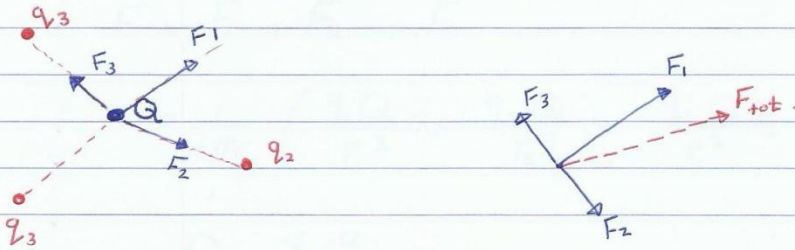 q3
F3
F1
Q
F2
q2
q3
F3
F1
Ftot.
F2